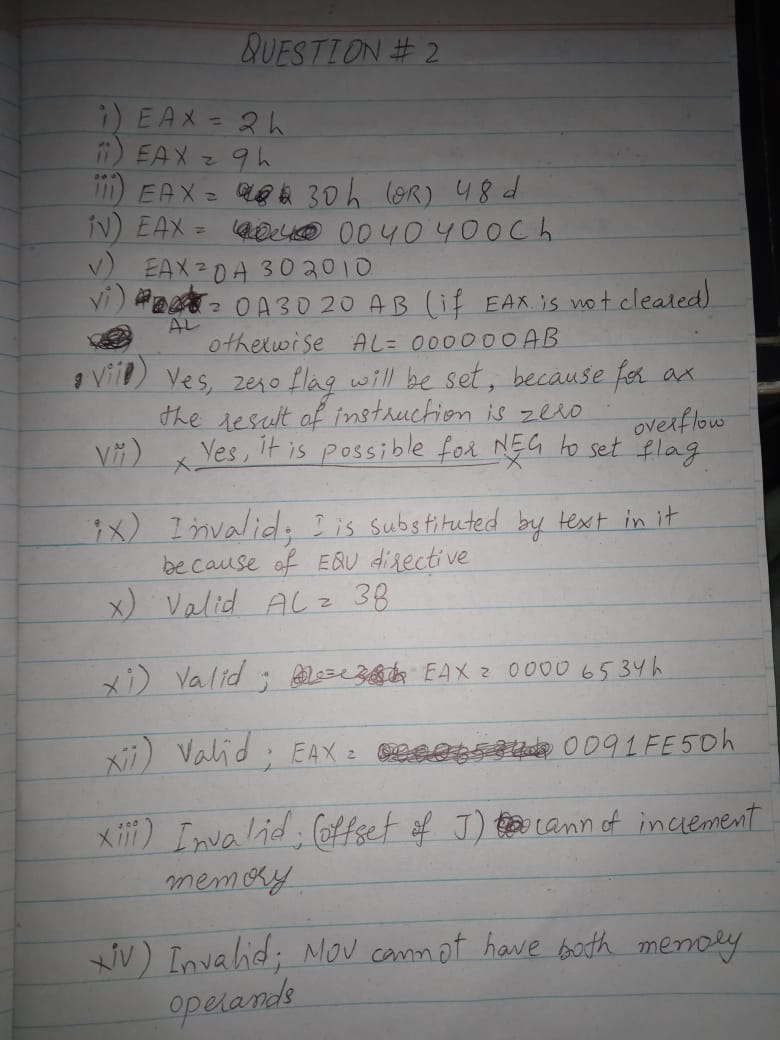 QUESTION # 2
i) EAX = 2h
ii) EAX = 9h
iii) EAX = 30h (OR) 48d
iv) EAX = 0040400Ch
v) EAX = 0A302010
vi) AL = 0A3020AB (if EAX is not cleared)
otherwise AL = 000000AB
viii) Yes, zero flag will be set, because for ax
the result of instruction is zero
vii) x Yes, it is possible for NEG to set overflow flag
x
ix) Invalid; I is substituted by text in it
because of EQU directive
x) Valid AL = 38
xi) Valid ; EAX = 00006534h
xii) Valid ; EAX = 0091FE50h
xiii) Invalid; (offset of J) cannot increment
memory
xiv) Invalid; MOV cannot have both memory
operands